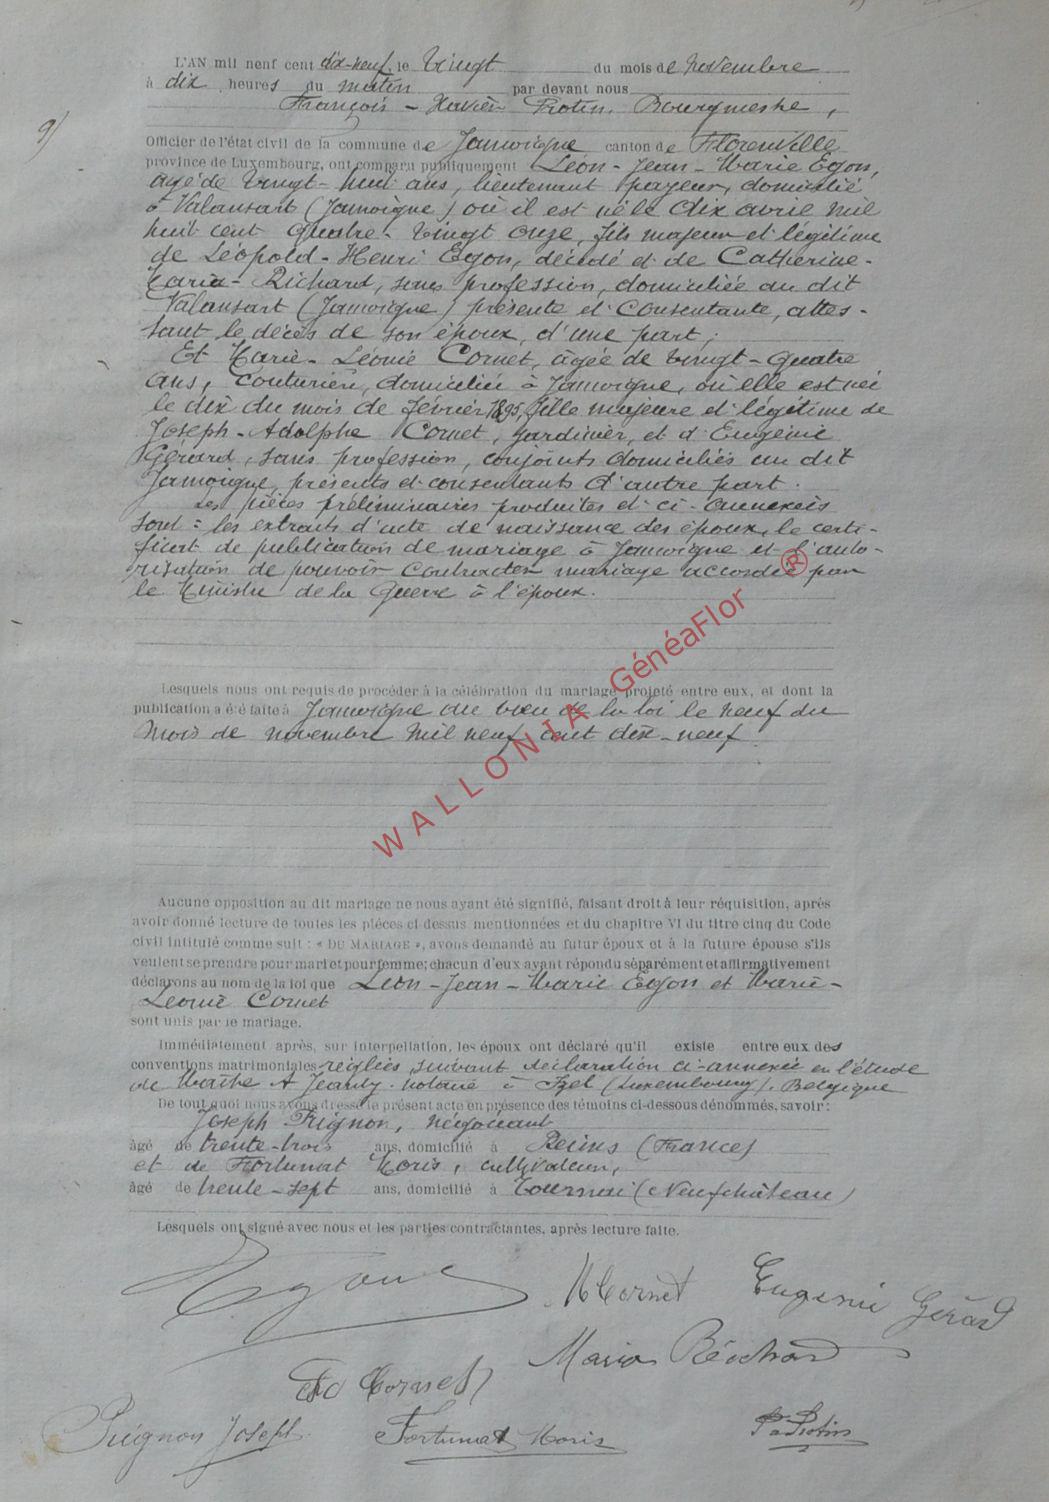 9)
L'AN mil neuf cent dix-neuf, le Vingt du mois de novembre
à dix heures du matin par devant nous
François - Xavier Protin, Bourgmestre,
Officier de l'état civil de la commune de Jamoigne canton de Florenville
province de Luxembourg, ont comparu publiquement Léon - Jean - Marie Egon,
âgé de Vingt - huit ans, lieutenant payeur, domicilié
à Valansart (Jamoigne) où il est né le dix avril mil
huit cent quatre - vingt onze, fils majeur et légitime
de Léopold - Henri Egon, décédé et de Catherine -
Maria - Richard, sans profession, domiciliée au dit
Valansart (Jamoigne) présente et consentante, attes -
tant le décès de son époux, d'une part;
Et Marie - Léonie Cornet, âgée de vingt - quatre
ans, couturière, domiciliée à Jamoigne, où elle est née
le dix du mois de février 1895, fille majeure et légitime de
Joseph - Adolphe Cornet, jardinier, et d'Eugénie
Gérard, sans profession, conjoints domiciliés au dit
Jamoigne, présents et consentants d'autre part.
Les pièces préliminaires produites et ci - annexées
sont : les extraits d'acte de naissance des époux, le certi -
ficat de publication de mariage à Jamoigne et l'auto -
risation de pouvoir contracter mariage accordée par
le Ministre de la Guerre à l'époux.
Lesquels nous ont requis de procéder à la célébration du mariage projeté entre eux, et dont la
publication a été faite à Jamoigne au vœu de la loi le neuf du
mois de novembre mil neuf cent dix - neuf.
WALLONIA GénéaFlor ®
Aucune opposition au dit mariage ne nous ayant été signifié, faisant droit à leur réquisition, après
avoir donné lecture de toutes les pièces ci dessus mentionnées et du chapitre VI du titre cinq du Code
civil intitulé comme suit : « DU MARIAGE », avons demandé au futur époux et à la future épouse s'ils
veulent se prendre pour mari et pour femme; chacun d'eux ayant répondu séparément et affirmativement
déclarons au nom de la loi que Léon - Jean - Marie Egon et Marie -
Léonie Cornet
sont unis par le mariage.
Immédiatement après, sur interpellation, les époux ont déclaré qu'il existe entre eux des
conventions matrimoniales réglées suivant déclaration ci-annexée en l'étude
de Maître A Jeanty notaire à Izel (Luxembourg). Belgique
De tout quoi nous avons dressé le présent acte en présence des témoins ci-dessous dénommés, savoir :
Joseph Pirignon, négociant
âgé de trente - trois ans, domicilié à Reims (France)
et de Fortunat Moris, cultivateur,
âgé de trente - sept ans, domicilié à Tournai (Neufchâteau)
Lesquels ont signé avec nous et les parties contractantes, après lecture faite.
Egon M Cornet Eugénie Gérard
Maria Richard
Ad Cornet
Pirignon Joseph Fortunat Moris Protin